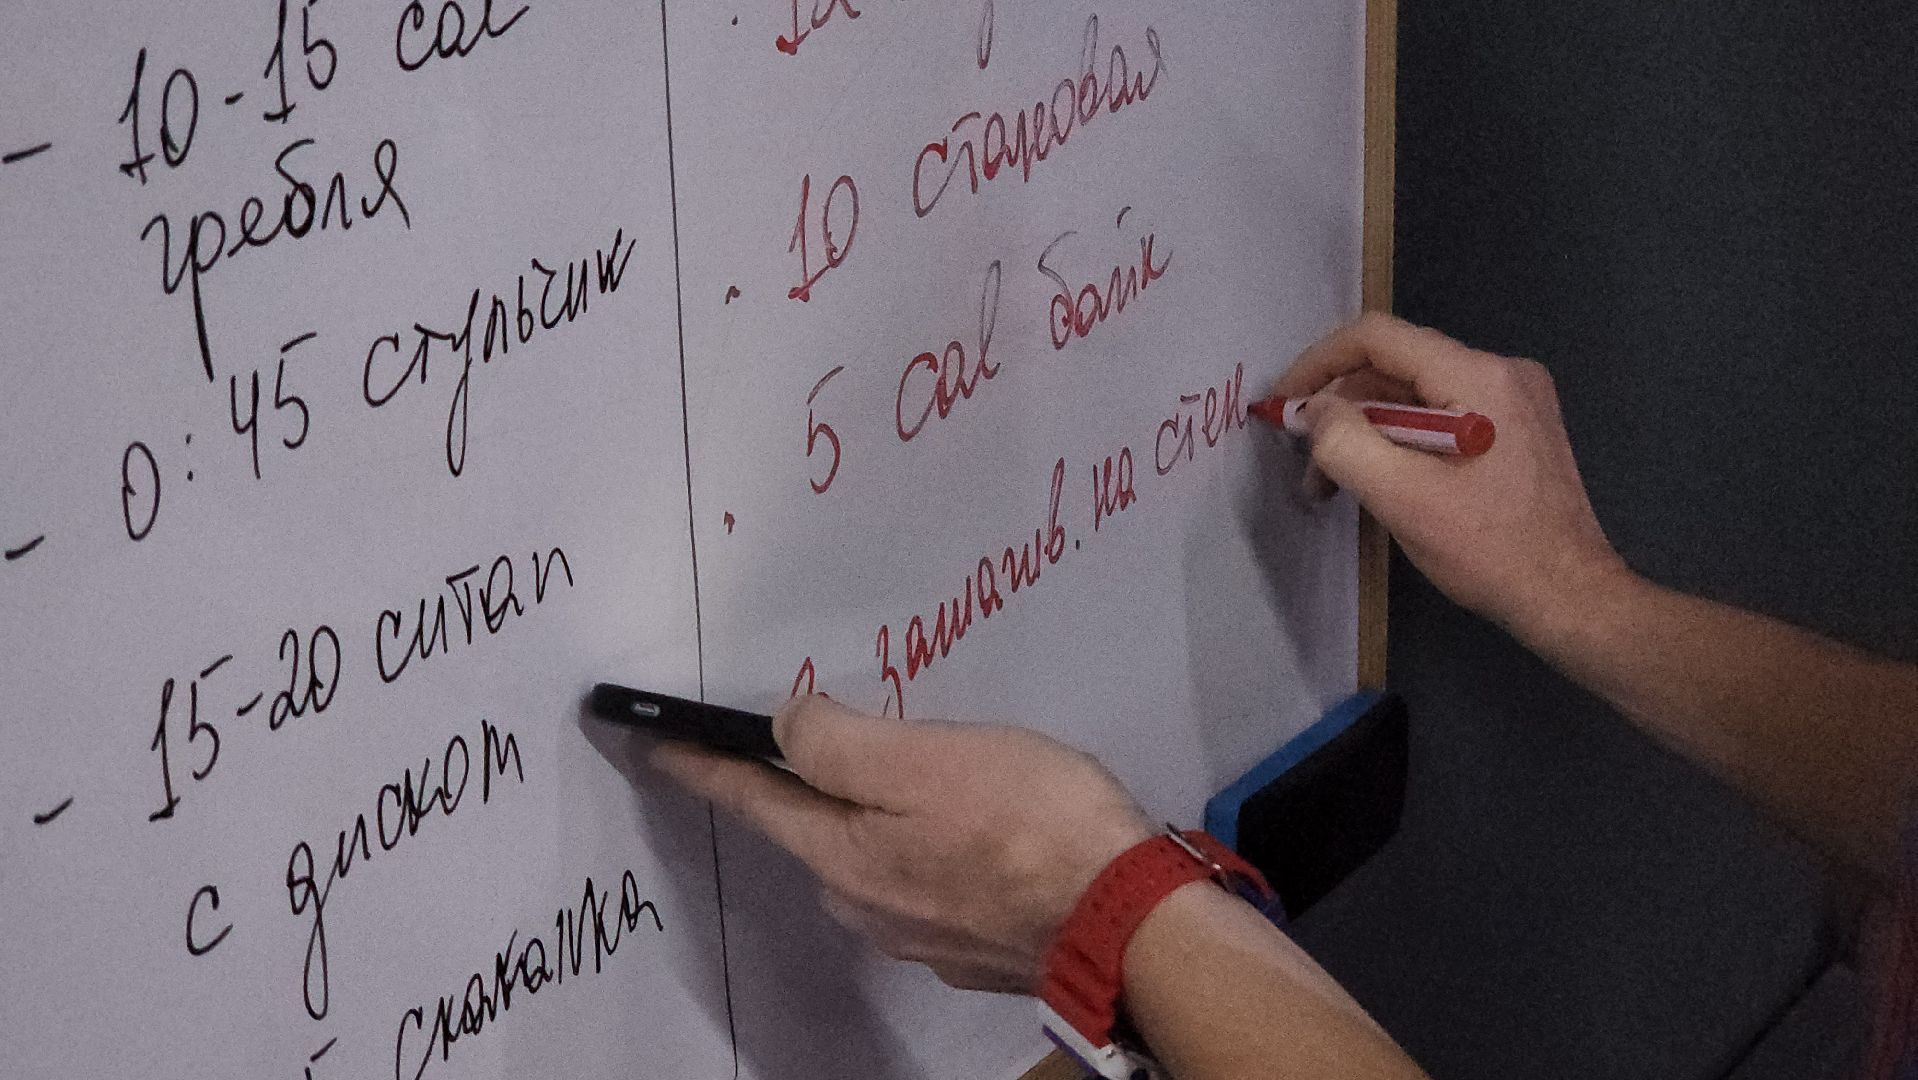 - 10-15 cal
гребля
- 0:45 стульчик
- 15-20 ситап
с диском
скакалка
• 10 становая
• 5 cal байк
зашагив. на стен